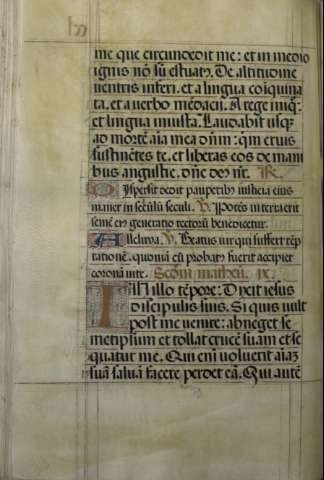 me que circundedit me: et in medio
ignis nõ sũ estuatꝰ. De altitudine
uentris inferi. et a lingua coiquina
ta. et a uerbo mẽdacii. A rege iniqͦ:
et lingua iniusta. Laudabit usqꝫ
ad mortẽ aĩa mea dñm: qm̃ eruis
sustinẽtes te. et liberas eos de mani
bus angustie. dñe deꝰ nr̃. R.
Dispersit dedit pauperibꝰ iusticia eius
manet in sećulũ seculi. V. Potẽs in terra erit
semẽ eiꝰ generatio rectorũ benedicetur.
Alleluya. V. Beatus uir qui suffert tẽp
tationẽ. quoniã cũ probatꝰ fuerit accipiet
coronã uite. Scdm matheũ.
In illo tẽpore: Dixit iesus
discipulis suis. Si quis uult
post me uenire: abneget se
metipsum et tollat crucẽ suam et se
quatur me. Qui eni uoluerit aĩaʒ
suã saluã facere perdet eã. Qui autẽ